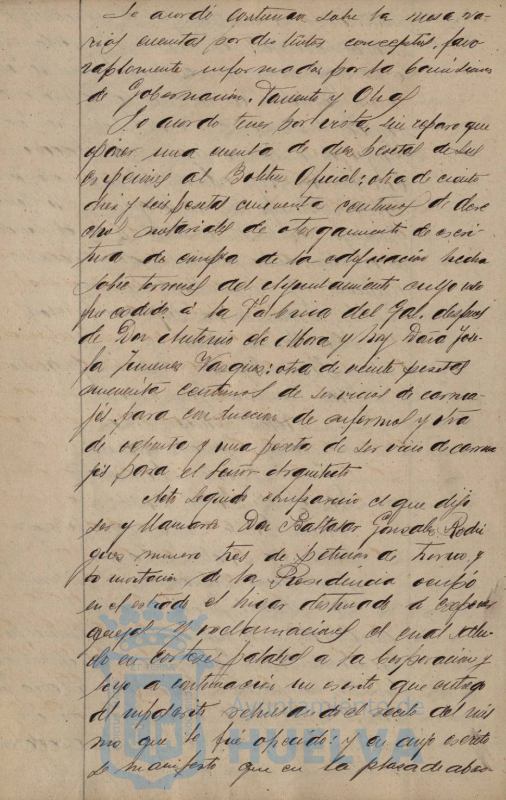 Se acordó continuar sobre la mesa va-
rias cuentas por distintos conceptos, favo-
rablemente informadas por las Comisiones
de Gobernación, Fomento y Obras
Se acordó tener por vista, sin reparo que
oponer una cuenta de diez pesetas de sus-
cripciones al Boletín Oficial; otra de ciento
diez y seis pesetas cincuenta centimos de dere-
chos notariales de otorgamiento de escri-
tura de compra de la edificación hecha
sobre terrenos del Ayuntamiento cuyo uso
fue cedido á la Fabrica del Gas, despues
de Don Antonio de Mora y hoy Doña Jose-
fa Jimenez Vazquez; otra de veinte pesetas
cincuenta centimos de servicios de carrua-
jes para conduccion de enfermos y otra
de ochenta y una peseta de servicio de carrua-
jes para el Señor Arquitecto
Acto seguido compareció el que dijo
ser y llamarse Don Baltasar Gonzalez Rodri-
guez numero tres de peticion de turno, y
por invitacion de la Presidencia ocupó
en el estrado el lugar destinado á exponer
quejas y reclamaciones el cual salu-
dó en corteses palabras a la Corporacion y
leyo a continuacion un escrito que entregó
al
del mis-
mo que le fue y en cuyo escrito
se manifiesta que en la plaza de abas-
Ayuntamiento de
HUELVA